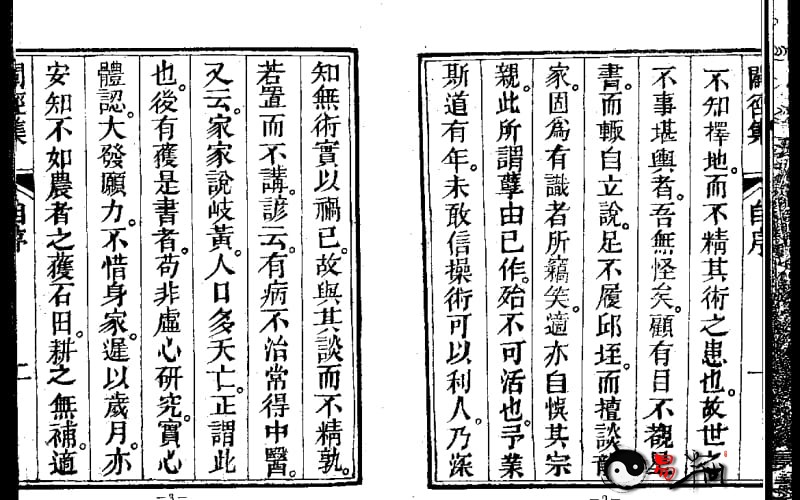 闢徑集 自序 一
不知擇地。而不精其術之患也。故世之
不事堪輿者。吾無怪矣。顧有目不覩星
書。而輒自立說。足不履邱垤。而擅談龍
家。固爲有識者所竊笑。適亦自悞其宗
親。此所謂孽由已作。殆不可活也。予業
斯道有年。未敢信操術可以利人。乃深
知無術實以禍已。故與其談而不精。孰
若置而不講。諺云。有病不治常得中醫。
又云。家家說岐黃。人口多夭亡。正謂此
也。後有獲是書者。苟非虛心研究。實心
體認。大發願力。不惜身家。遲以歲月。亦
安知不如農者之獲石田。耕之無補。適
闢徑集 自序 二
—3—